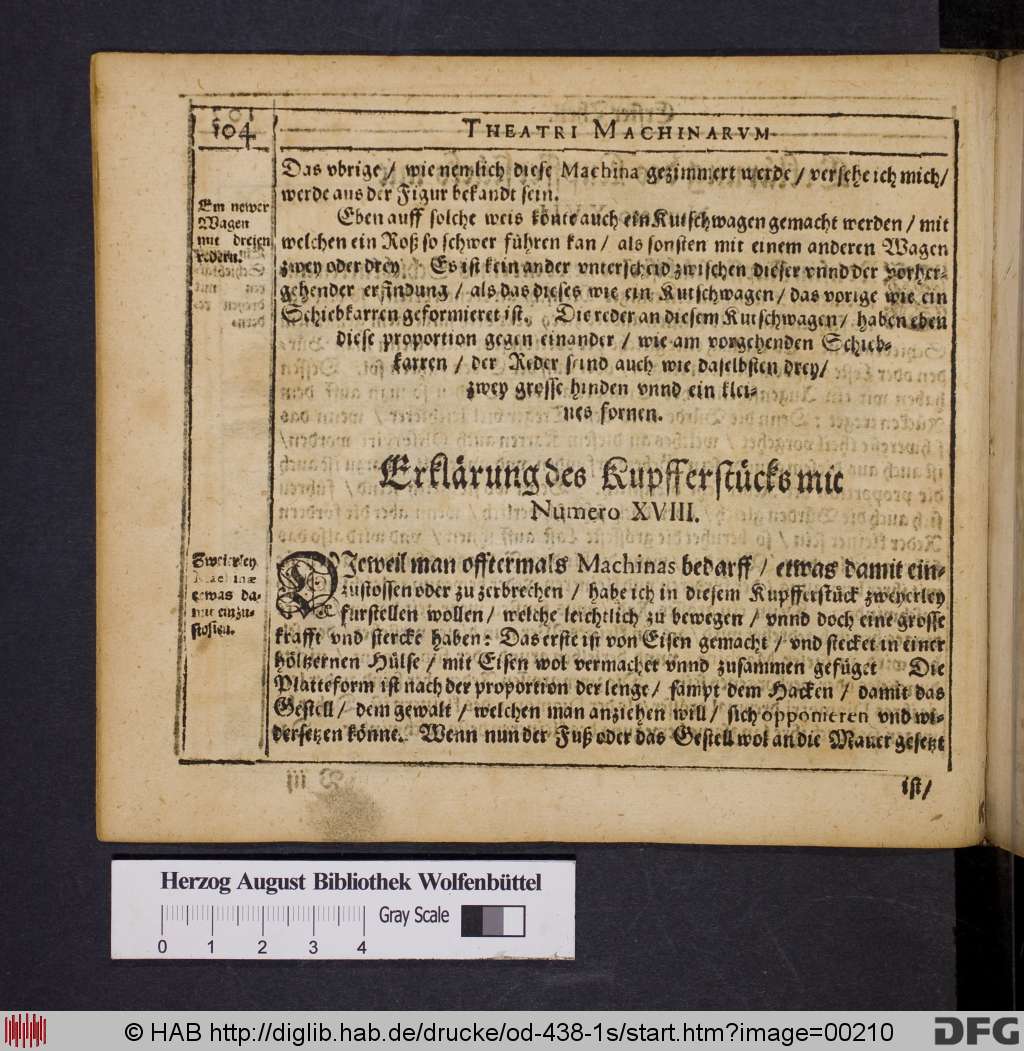 104
THEATRI MACHINARVM
Das vbrige / wie nemlich diese Machina gezimmert werde / versehe ich mich /
werde aus der Figur bekandt sein.
Ein newer
Wagen
mit dreien
redern.
Eben auff solche weis könte auch ein Kutschwagen gemacht werden / mit
welchen ein Roß so schwer führen kan / als sonsten mit einem anderen Wagen
zwey oder drey. Es ist kein ander vnterscheid zwischen dieser vnnd der vorher-
gehender erfindung / als das dieses wie ein Kutschwagen / das vorige wie ein
Schiebkarren geformieret ist. Die reder an diesem Kutschwagen / haben eben
diese proportion gegen einander / wie am vorgehenden Schieb-
karren / der Reder seind auch wie daselbsten drey /
zwey grosse hinden vnnd ein klei-
nes fornen.
Erklärung des Kupfferstücks mit
Numero XVIII.
Zweierley
Machinæ
etwas da-
mit einzu-
stossen.
DIeweil man offtermals Machinas bedarff / etwas damit ein-
zustossen oder zu zerbrechen / habe ich in diesem Kupfferstück zweyerley
furstellen wollen / welche leichtlich zu bewegen / vnnd doch eine grosse
krafft vnd stercke haben: Das erste ist von Eisen gemacht / vnd stecket in einer
höltzernen Hülse / mit Eisen wol vermachet vnnd zusammen gefüget. Die
Platteform ist nach der proportion der lenge / sampt dem Hacken / damit das
Gestell / dem gewalt / welchen man anziehen will / sich opponieren vnd wi-
dersetzen könne. Wenn nun der Fuß oder das Gestell wol an die Mauer gesetzt
ist /
Herzog August Bibliothek Wolfenbüttel
Gray Scale
0 1 2 3 4
© HAB http://diglib.hab.de/drucke/od-438-1s/start.htm?image=00210
DFG